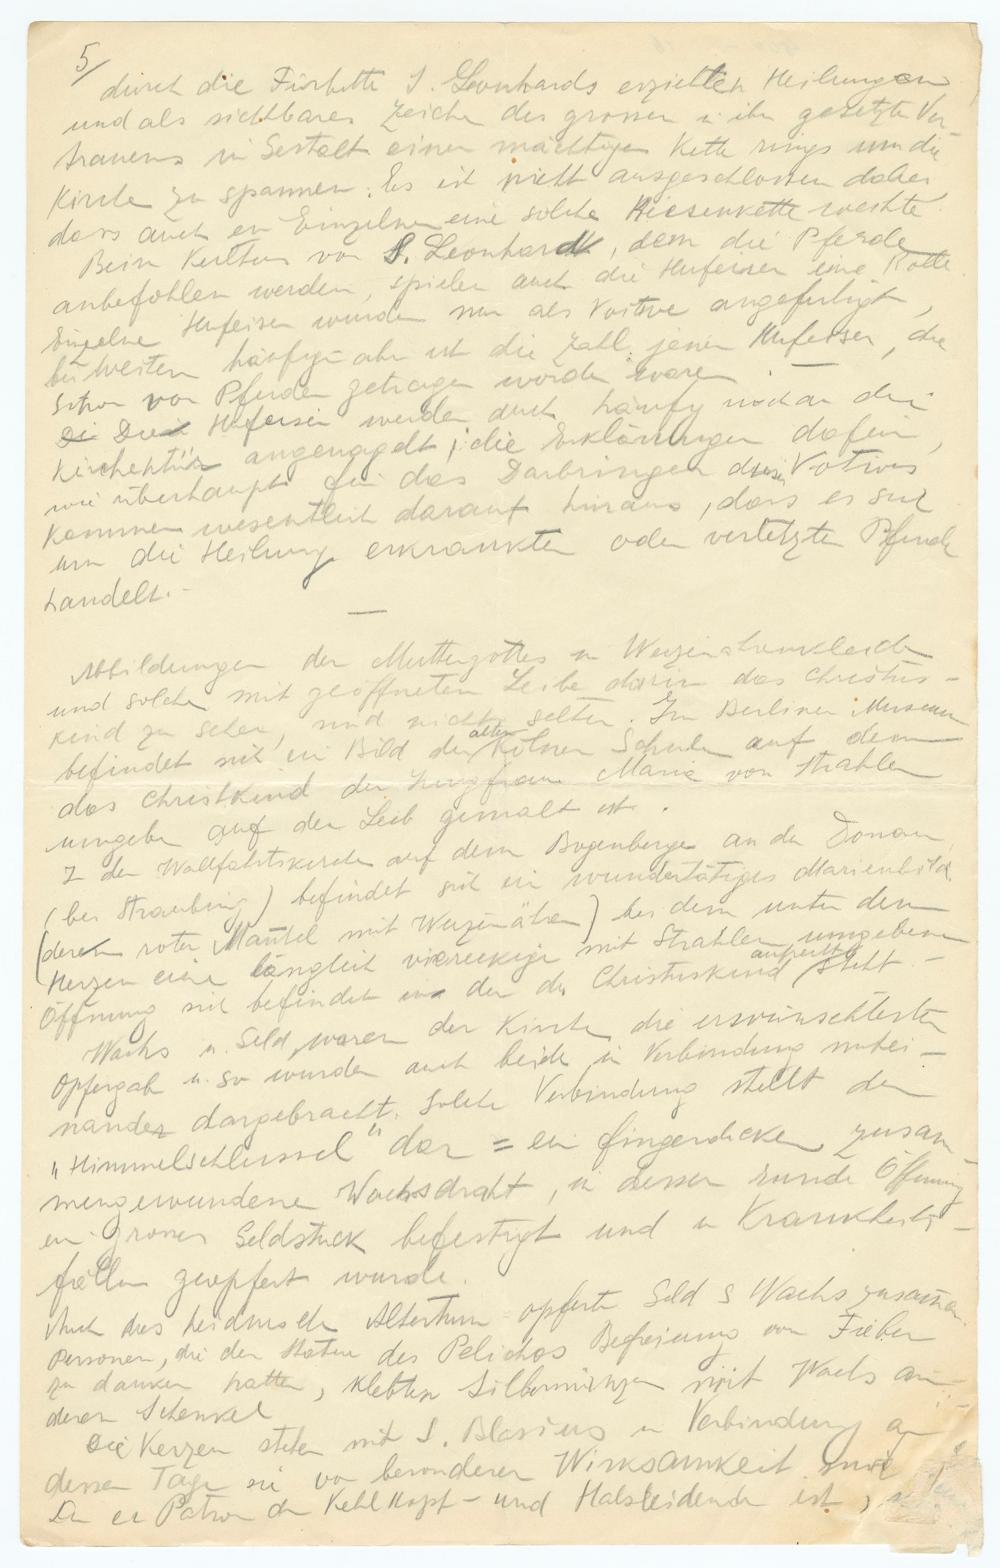 5/
durch die Fürbitte S. Leonhards erzielten Heilungen
und als sichtbares Zeichen des grossen in ihn gesetzten Ver-
trauens in Gestalt einer mächtigen Kette rings um die
Kirche zu spannen. Es ist nicht ausgeschlossen daher,
dass auch ein Einzelner eine solche Riesenkette weihte.
Beim Kultus von S. Leonhard, dem die Pferde
anbefohlen werden, spielen auch die Hufeisen eine Rolle.
Einzelne Hufeisen wurden nur als Votive angefertigt,
bei weitem häufiger aber ist die Zahl jener Hufeisen, die
schon von Pferden getragen worden waren. —
Diese Hufeisen werden auch häufig noch an den
Kirchentüren angenagelt; die Erklärungen dafür,
wie überhaupt für das Darbringen dieses Votives
kommen wesentlich darauf hinaus, dass es sich
um die Heilung erkrankter oder verletzter Pferde
handelt. –
—
Abbildungen der Muttergottes im Weizenährenkleide
und solche mit geöffneten Leibe darin das Christus-
kind zu sehen, sind nicht selten. Im Berliner Museum
befindet sich ein Bild der alten Kölner Schule auf dem
das Christkind der Jungfrau Maria von Strahlen
umgeben auf den Leib gemalt ist.
I der Wallfahrtskirche auf dem Bogenberge an der Donau
(bei Straubing) befindet sich ein wundertätiges Marienbild
(deren roter Mantel mit Weizenähren) bei dem unter dem
Herzen eine länglich viereckige mit Strahlen umgebene
Öffnung sich befindet in der das Christuskind aufrecht steht. –
Wachs u. Geld waren der Kirche die erwünschtesten
Opfergaben u. so wurden auch beide in Verbindung mitei-
nander dargebracht. Solche Verbindung stellt der
„Himmelschlüssel" dar = ein fingerdicker, zusam-
mengewundener Wachsdraht, in dessen runde Öffnung
ein grosses Geldstück befestigt und in Krankheits-
fällen geopfert wurde.
Auch das heidnische Altertum opferte Geld & Wachs zusammen.
Personen, die der Statue des Pelichos Befreiung von Fieber
zu danken hatten, klebten Silbermünzen mit Wachs an
deren Schenkel
Die Kerzen stehen mit S. Blasius in Verbindung an
dessen Tage sie von besonderer Wirksamkeit sind
Da er Patron der Kehlkopf- und Halsleidenden ist,